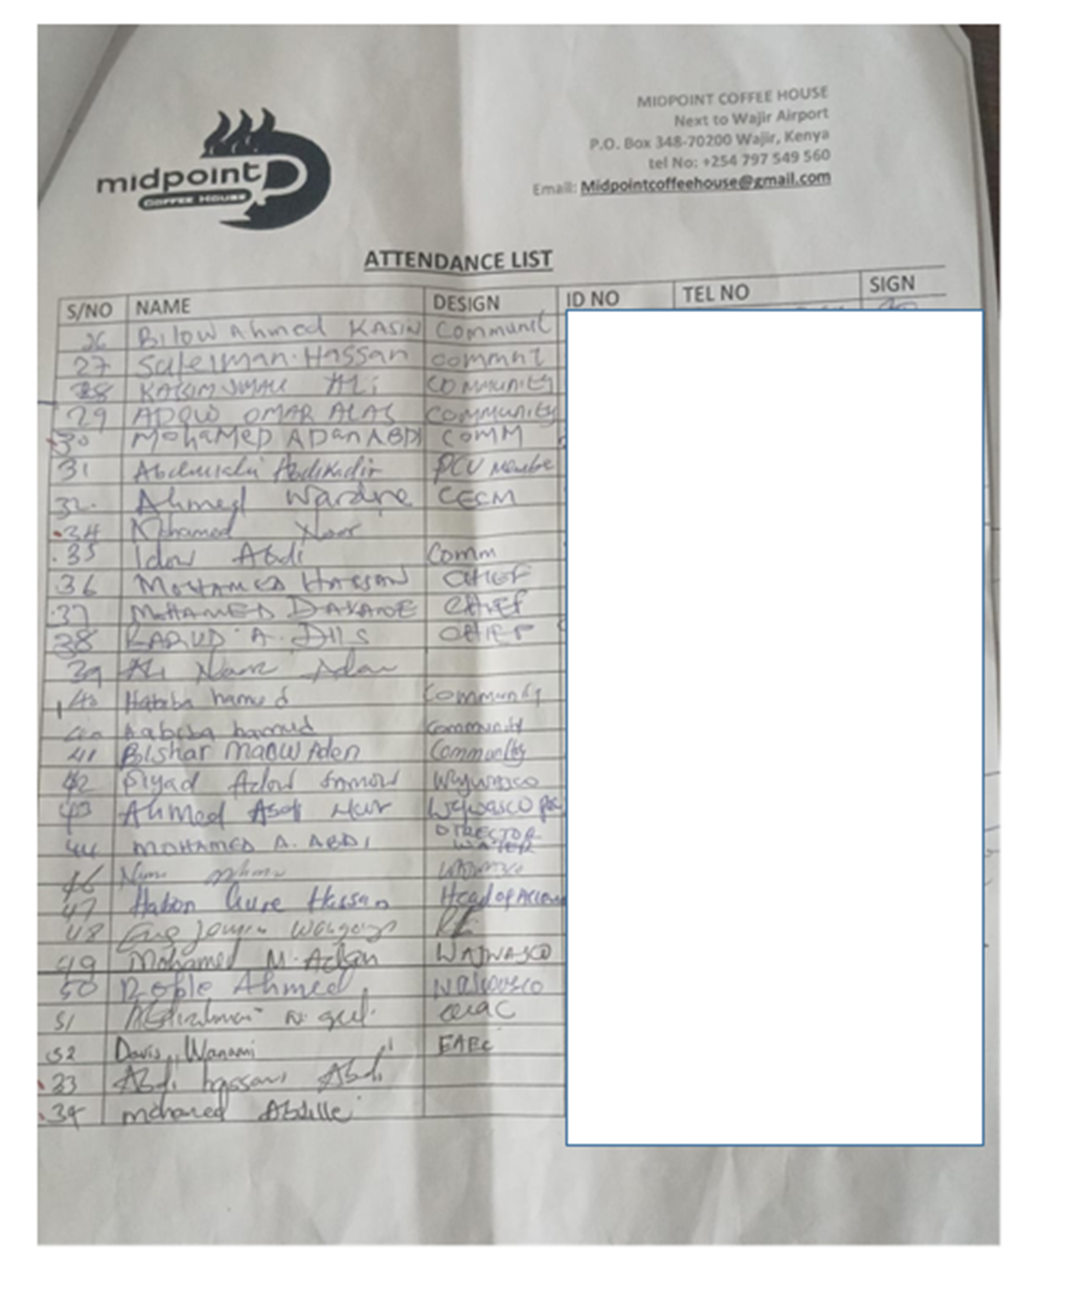 midpoint
COFFEE HOUSE
MIDPOINT COFFEE HOUSE
Next to Wajir Airport
P.O. Box 348-70200 Wajir, Kenya
tel No: +254 797 549 560
Email: Midpointcoffeehouse@gmail.com
ATTENDANCE LIST
S/NO NAME DESIGN ID NO TEL NO SIGN
26 Bilow Ahmed KASIM Communit
27 Suleiman Hassan commnt
28 ALi COMMUNITY
29 ADOW OMAR ALAS COMMUNITY
30 MohaMED ADanABDI COMM
31 Abdikadir PCU Membe
32. Ahmed Wardne CECM
34 Mohamed Noor
35 Idow Abdi Comm
36 MOHAMED HASSAN CHIEF
37 MOHAMED CHIEF
38 A. DIIS CHIEF
39 Ali Noor Adan
40 Habiba hamed Community
Habiba hamed Community
41 Bishar Maow Aden Community
42 Adow Wajwasco
43 Ahmed Nur Wajwasco
44 MOHAMED A. ABDI DIRECTOR WATER
46
47 Habon Gure Hassan Head of Accoun
48 Eng RE
49 Mohamed M. Adan WAJWASCO
50 Roble Ahmed Wajwasco
51
52 Davis Wanami EAEC
33 Abdi hassan Abdi
34 mohamed Abdille